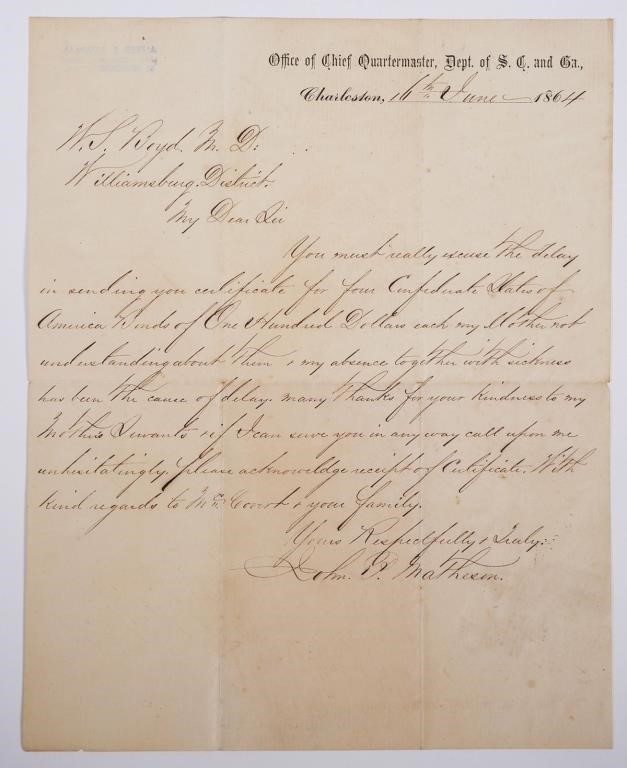 Office of Chief Quartermaster, Dept. of S. C. and Ga.,
Charleston, 16th June 1864
W. S. Boyd. M. D:
Williamsburg. District.
My Dear Sir
You must really excuse the delay
in sending you certificate for four Confederate States of
America Bonds of One Hundred Dollars each my Mother not
understanding about them & my absence together with sickness
has been the cause of delay. many thanks for your kindness to my
Mothers Servants & if I can serve you in any way call upon me
unhisitatingly. please acknowledge receipt of Certificate. With
kind regards to Covert & your family.
Yours Respectfully & Truly:
John. P. Matheson.